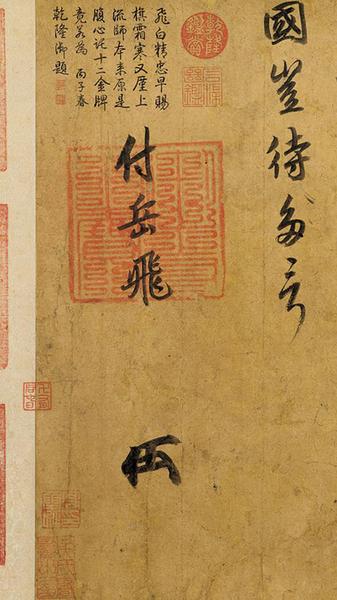 國豈待多言
付岳飛
飛白精忠早賜
旗霜寒又厪上
流師本來原是
腹心託十二金牌
竟若為 丙子春
乾隆御題
乾隆鑑賞